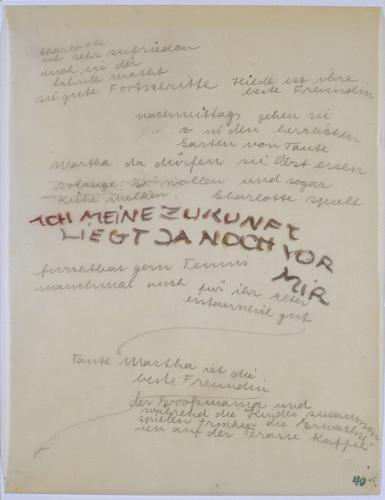 Charlotte
ist sehr zufrieden
auch in der
Schule macht
sie gute Fortschritte Hiede ist ihre
beste Freundin
nachmittags gehen sie
in den herrlichen
Garten von Tante
Martha da dürfen sie Obst essen
solange sie wollen und sogar
Kühe melken. Charlotte spielt
ACH MEINE ZUKUNFT
LIEGT JA NOCH VOR
MIR
furchtbar gern Tennis
manchmal auch für ihr Alter
gut
Tante Martha ist die
beste Freundin
der Grossmama und
während die Kinder zusammen
spielen trinken die Erwachse-
nen auf der Terasse Kaffee
40